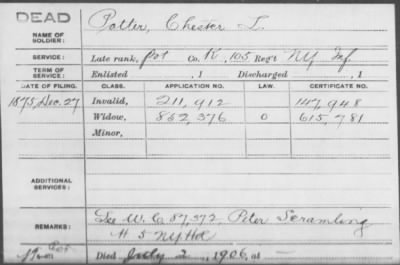 DEAD
NAME OF SOLDIER: Potter, Chester L.
SERVICE: Late rank, Pvt Co. K, 105 Reg't NY Inf.
TERM OF SERVICE: Enlisted , 1 Discharged , 1
DATE OF FILING. CLASS. APPLICATION NO. LAW. CERTIFICATE NO.
1875, Dec. 27 Invalid, 211,912 147,948
Widow, 862,376 O 615,781
Minor,
ADDITIONAL SERVICES:
REMARKS: See W. C 87,372, Peter Scrambling
H 5 NY HA
Died July 2, 1906, at —